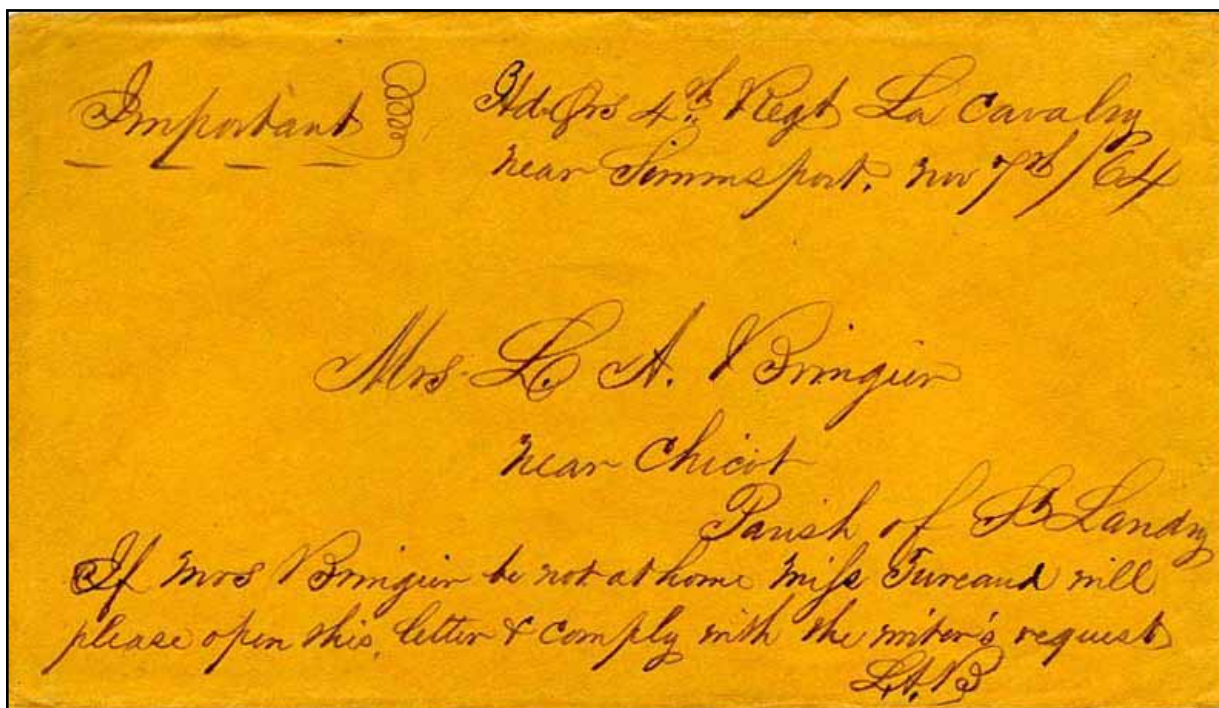 Important
Hd. Qrs 4th Regt La Cavalry
near Simmsport. Nov 7th/64
Mrs. L. A. Bringier
near Chicot
Parish of St Landry
If Mrs Bringier be not at home Miss Tureaud will
please open this letter & comply with the writer's request
L.A.B